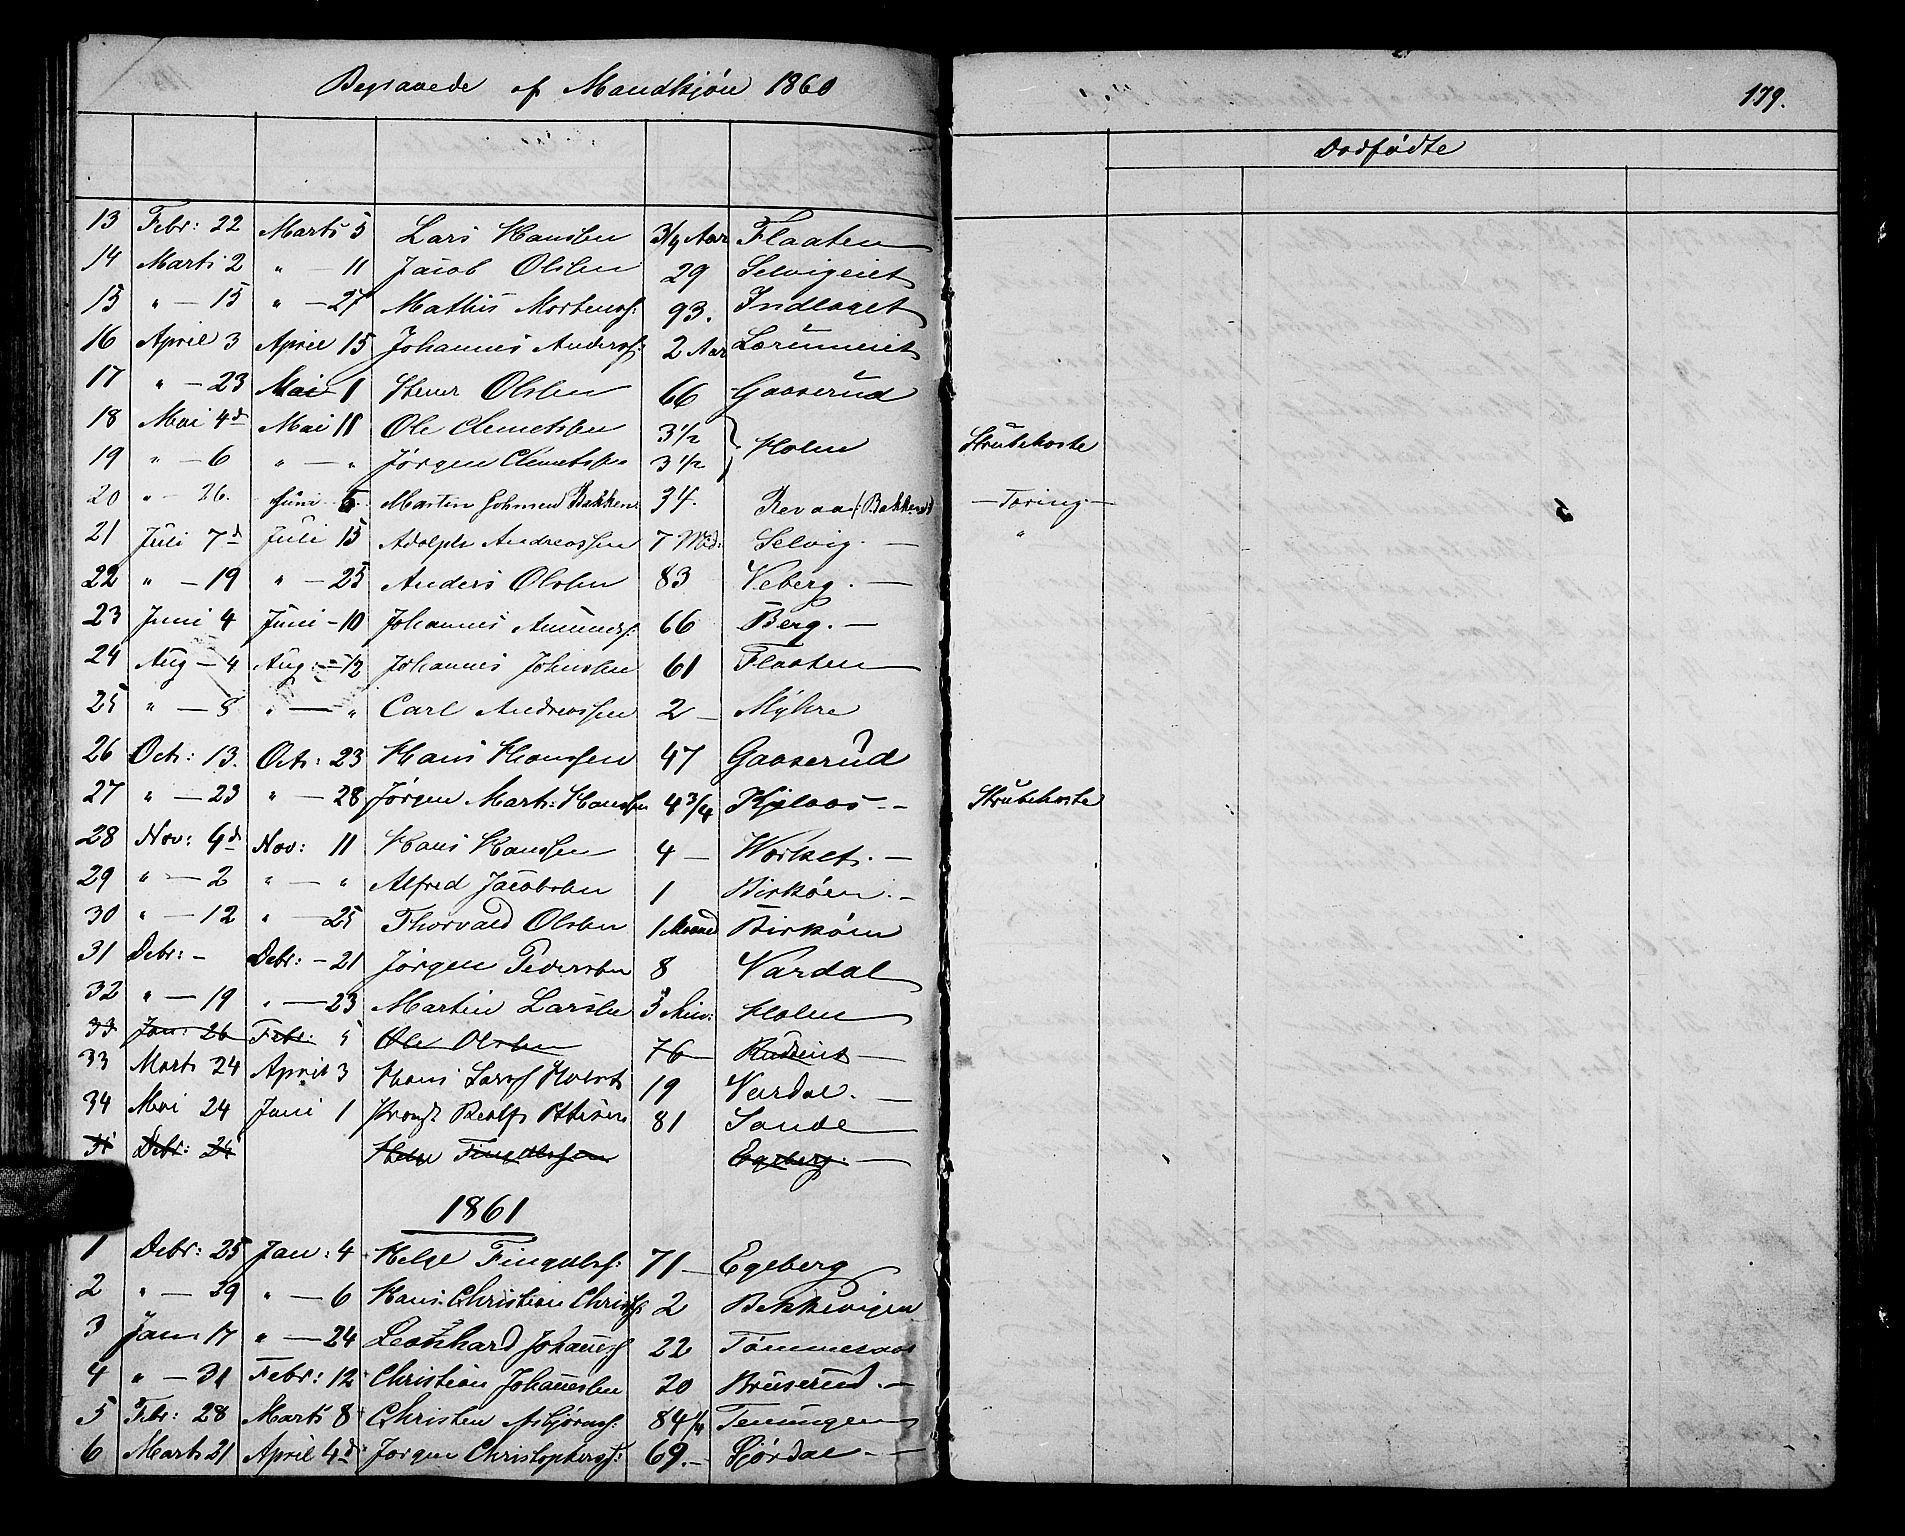 Begravede af Mandkjön 1860
179.
Dødfødte
13 Febr: 22 Marts 5 Lars Hanssen 3/4 Aar Flaaten
14 Marts 2 " — 11 Jacob Olssen 29 Selvigeiet
15 " — 15 " — 27 Mathis Mortens: 93. Indlaget
16 April 3 April 15 Johannes Anders: 2 Aar Lærumeiet
17 " — 23 Mai 1 Stener Olssen 66 Gaaserud
18 Mai 4d Mai 11 Ole Clemetsen 3 1/2 Holm Strubehoste
19 " — 6 " — " Jørgen Clemetsen 3 1/2
20 " — 26. Juni 5. Martin Johnsen Bakken 34. Revaa (Bakken) — Tæring —
21 Juli 7d Juli 15 Adolph Andreassen 7 Md: Selvig. — "
22 " — 19 " — 25 Anders Olssen 83 Veberg. —
23 Juni 4 Juni — 10 Johannes Amunds: 66 Berg. —
24 Aug — 4 Aug: — 12 Johannes Johnssen 61 Flaaten
25 " — 8 " — " Carl Andreassen 2 — Myhre
26 Oct: 13. Oct: 23 Hans Hanssen 47 Gaaserud
27 " — 23 " — 28 Jørgen Mart: Hanssen 4 3/4 Kjelaas — Strubehoste
28 Nov: 6d Nov: 11 Hans Hanssen 4 — Værket. —
29 " — 2 " — " Alfred Jacobsen 1 Birköen. —
30 " — 12 " — 25 Thorvald Olsen 1 Maaned Birköen
31 Debr: — Debr: — 21 Jørgen Pedersen 8 Vardal
32 " — 19 " — 23 Martin Larssen 5 Min: Holm
33 Jan: 26 Febr: 5 Ole Olssen 76 Rudseiet —
33 Marts 24 April 3 Hans Larss 19 Vardal. —
34 Mai 24 Juni 1 Rolfs 81 Sande
Debr: 24 Helge Fingalssen Egeberg. —
1861
1 Debr: 25 Jan: 4 Helge Fingalss: 71 — Egeberg
2 " — 29 " — 6 Hans Christian Christs 2 Bekkevigen
3 Jan 17 " — 24 Leonhard Johanss 22 Tømmeraas
4 " — 31 Febr: 12 Christian Johanessen 20 Bruserud. —
5 Febr: 28 Marts 8 Christen Asbjørns: 84 1/4 Teningen
6 Marts 21 April 4d Jørgen Christophers: 69. — Gjørdal —